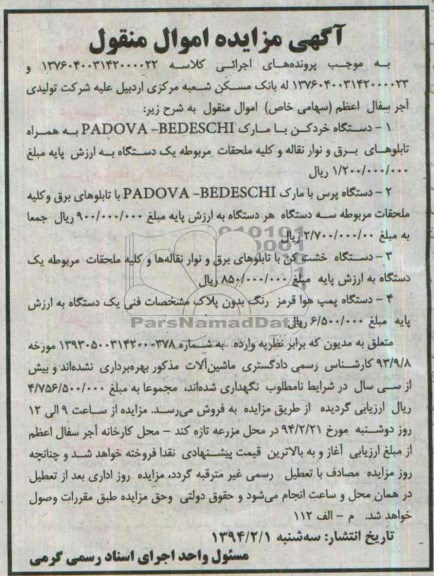 آگهی مزایده اموال منقول
به موجب پرونده‌های اجرائی کلاسه ۱۳۷۶۰۴۰۰۳۱۴۲۰۰۰۰۲۲ و
۱۳۷۶۰۴۰۰۳۱۴۲۰۰۰۰۲۳ له بانک مسکن شعبه مرکزی اردبیل علیه شرکت تولیدی
آجر سفال اعظم (سهامی خاص) اموال منقول به شرح زیر:
۱ - دستگاه خردکن با مارک PADOVA -BEDESCHI به همراه
تابلوهای برق و نوار نقاله و کلیه ملحقات مربوطه یک دستگاه به ارزش پایه مبلغ
۱/۲۰۰/۰۰۰/۰۰۰ ریال
۲ - دستگاه پرس با مارک PADOVA -BEDESCHI با تابلوهای برق وکلیه
ملحقات مربوطه سه دستگاه هر دستگاه به ارزش پایه مبلغ ۹۰۰/۰۰۰/۰۰۰ ریال جمعا
به مبلغ ۲/۷۰۰/۰۰۰/۰۰ ریال
۳ - دستگاه خشت کن با تابلوهای برق و نوار نقاله‌ها و کلیه ملحقات مربوطه یک
دستگاه به ارزش پایه مبلغ ۸۵۰/۰۰۰/۰۰۰ ریال
۴ - دستگاه پمپ هوا قرمز رنگ بدون پلاک مشخصات فنی یک دستگاه به ارزش
پایه مبلغ ۶/۵۰۰/۰۰۰ ریال
ParsNamadData
متعلق به مدیون که برابر نظریه وارده به شماره ۱۳۹۳۰۵۰۰۳۱۴۳۰۰۰۳۷۸ مورخه
۹۳/۹/۸ کارشناس رسمی دادگستری ماشین‌آلات مذکور بهره‌برداری نشده‌اند و بیش
از سی سال در شرایط نامطلوب نگهداری شده‌اند، مجموعا به مبلغ ۴/۷۵۶/۵۰۰/۰۰۰
ریال ارزیابی گردیده از طریق مزایده به فروش می‌رسد. مزایده از ساعت ۹ الی ۱۲
روز دوشنبه مورخ ۹۴/۲/۲۱ در محل مزرعه تازه کند - محل کارخانه آجر سفال اعظم
از مبلغ ارزیابی آغاز و به بالاترین قیمت پیشنهادی نقدا فروخته خواهد شد و چنانچه
روز مزایده مصادف با تعطیل رسمی غیر مترقبه گردد، مزایده روز اداری بعد از تعطیل
در همان محل و ساعت انجام می‌شود و حقوق دولتی وحق مزایده طبق مقررات وصول
خواهد شد. م - الف ۱۱۲
تاریخ انتشار: سه‌شنبه ۱۳۹۴/۲/۱
مسئول واحد اجرای اسناد رسمی گرمی